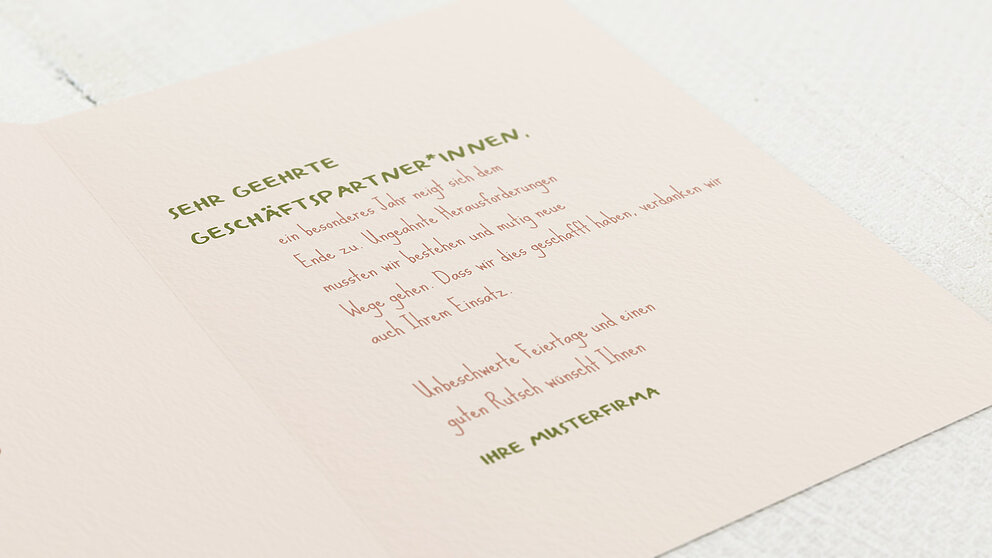 SEHR GEEHRTE
GESCHÄFTSPARTNER*INNEN,
ein besonderes Jahr neigt sich dem
Ende zu. Ungeahnte Herausforderungen
mussten wir bestehen und mutig neue
Wege gehen. Dass wir dies geschafft haben, verdanken wir
auch Ihrem Einsatz.
Unbeschwerte Feiertage und einen
guten Rutsch wünscht Ihnen
IHRE MUSTERFIRMA